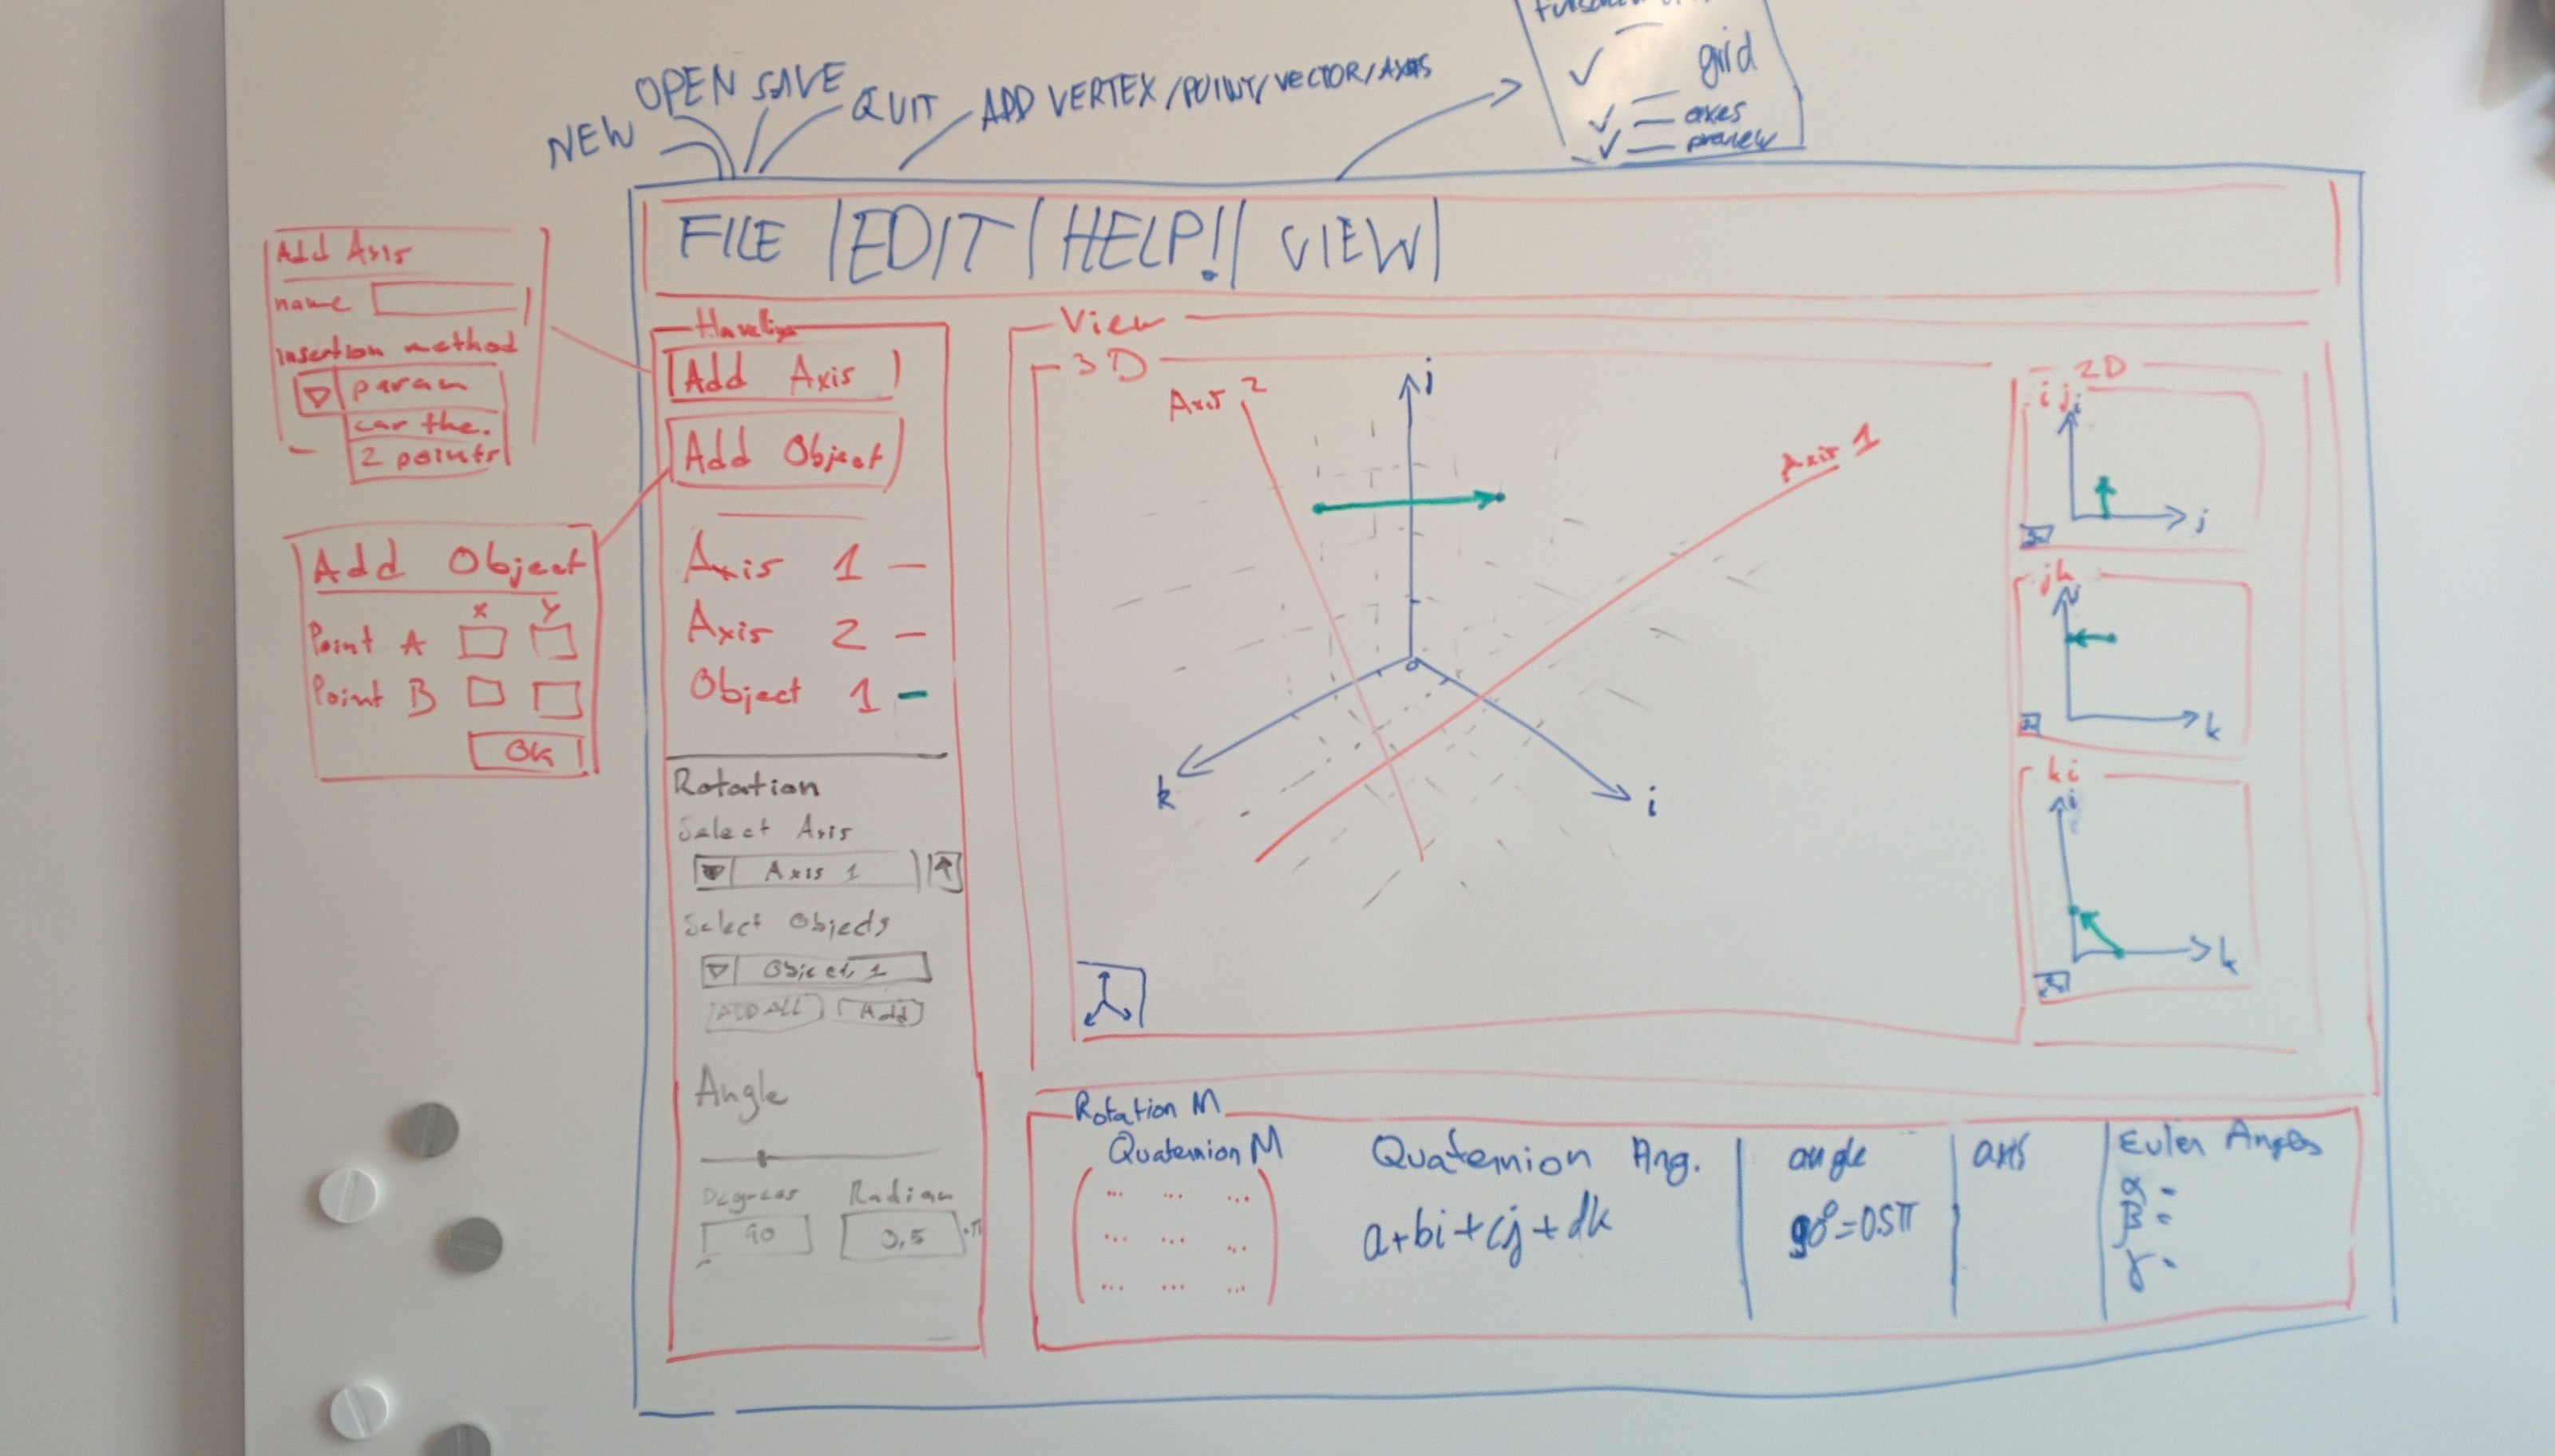 grid
axes
NEW OPEN SAVE QUIT ADD VERTEX/POINT/VECTOR/AXES
FILE | EDIT | HELP! | VIEW |
Add Axis
name
insertion method
param
car the.
2 points
Add Object
x y
Point A
Point B
Ok
Add Axis
Add Object
Axis 1
Axis 2
Object 1
Rotation
Select Axis
Axis 1
Select Objects
Object 1
ADD ALL Add
Angle
Degrees Radian
90 0,5 .π
View
3D
Axis 2
j
Axis 1
k
i
2D
i j
i
j
jk
j
k
ki
i
k
Rotation M
Quaternion M
... ... ...
... ... ...
... ... ...
Quaternion Ang.
a+bi+cj+dk
angle
90°=0.5π
axis
Euler Angles
α =
β =
γ =